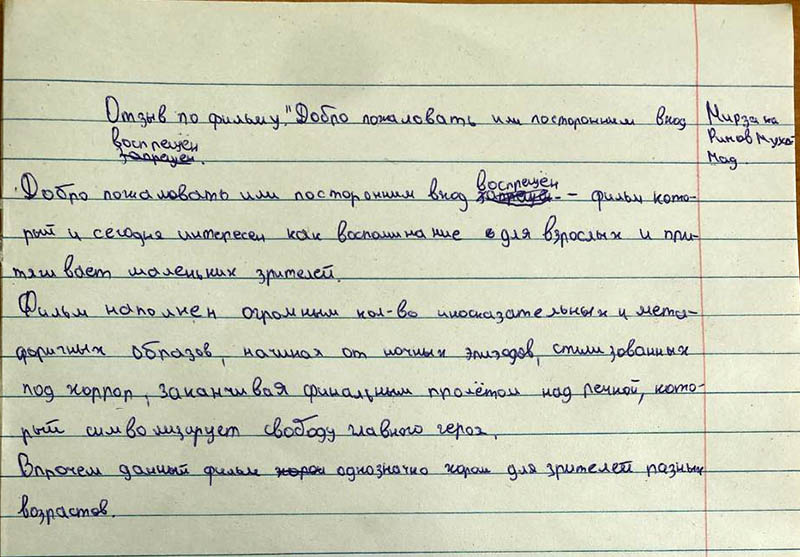 Отзыв по фильму "Добро пожаловать или посторонним вход
воспрещён
запрещен.
Мирзана
Ринов Муха
мад
Добро пожаловать или посторонним вход воспрещён – фильм кото-
рый и сегодня интересен как воспоминание для взрослых и при-
тягивает маленьких зрителей.
Фильм наполнен огромным кол-во иносказательных и мета-
форичных образов, начиная от ночных эпизодов, стилизованных
под хоррор, заканчивая финальным пролётом над речкой, кото-
рый символизирует свободу главного героя.
Впрочем данный фильм однозначно хорош для зрителей разных
возрастов.